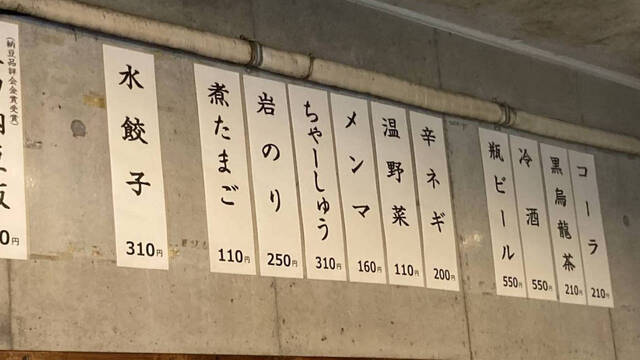 (納豆品評会金賞受賞)
水餃子
310円
煮たまご
110円
岩のり
250円
ちゃーしゅう
310円
メンマ
160円
温野菜
110円
辛ネギ
200円
瓶ビール
550円
冷酒
550円
黒烏龍茶
210円
コーラ
210円